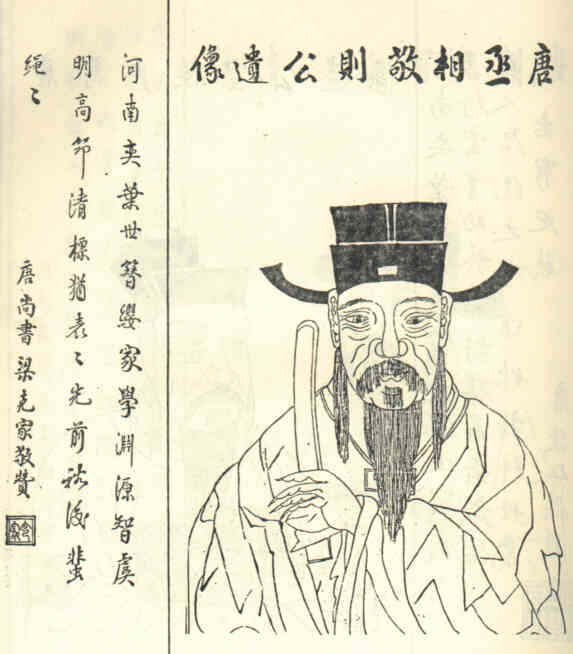 唐丞相敬則公遺像
河南奕葉世簪纓家學淵源智虞
明高節清標猶袁〻先前裕後蜚
繩〻
唐尚書梁克家敬贊